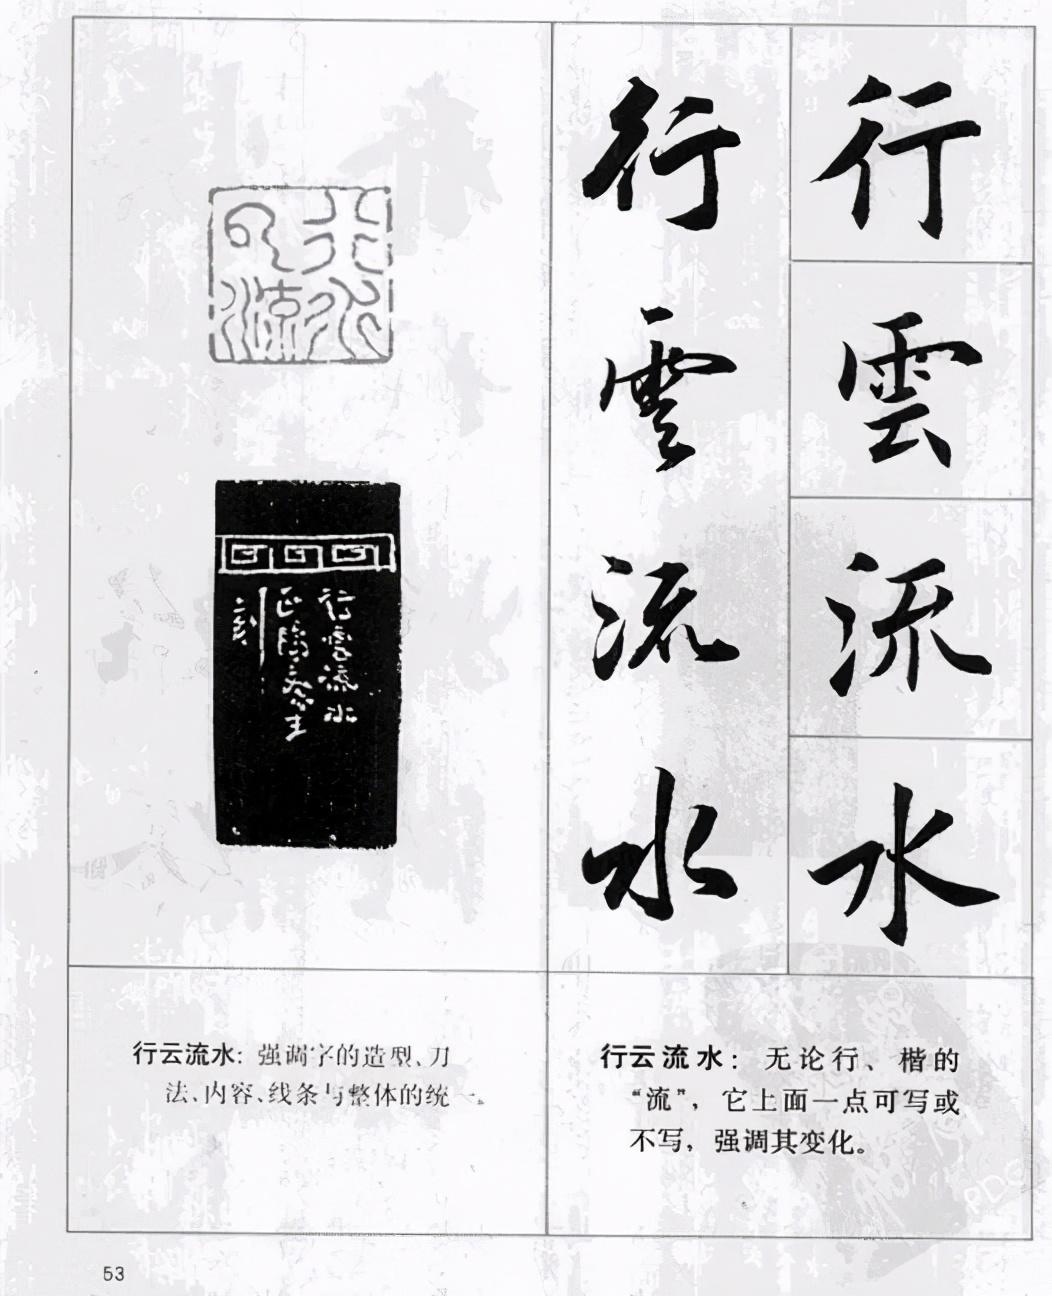 行
雲
流
水
行
雲
流
水
行雲流水
刻
行云流水：强调字的造型、刀
法、内容、线条与整体的统一。
行云流水：无论行、楷的
“流”，它上面一点可写或
不写，强调其变化。
53